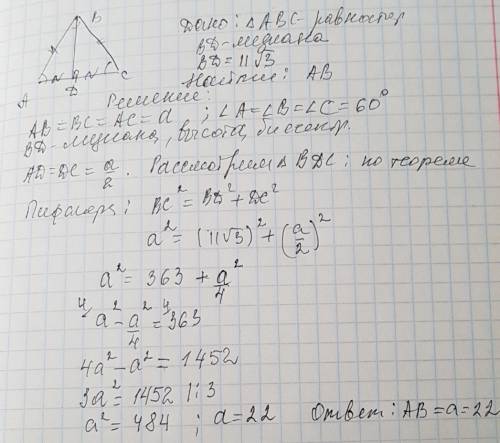 B
A D C
Дано: △ABC-равностор
BD-медиана
BD = 11√3
Найти: AB
Решение:
AB = BC = AC = a ; ∠A = ∠B = ∠C = 60°
BD-медиана, высота, биссект.
AD = DC = a/2. Рассмотрим △ BDC: по теореме
Пифагора: BC² = BD² + DC²
a² = (11√3)² + (a/2)²
a² = 363 + a²/4
⁴⁄a² - a²/4 = ⁴⁄363
4a² - a² = 1452
3a² = 1452 |:3
a² = 484 ; a = 22 Ответ: AB = a = 22